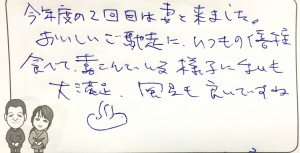 今年度の2回目は妻と来ました。
おいしいご馳走に、いつもの倍程
食べて、喜こんでいる様子に私も
大満足、風呂も良いですね